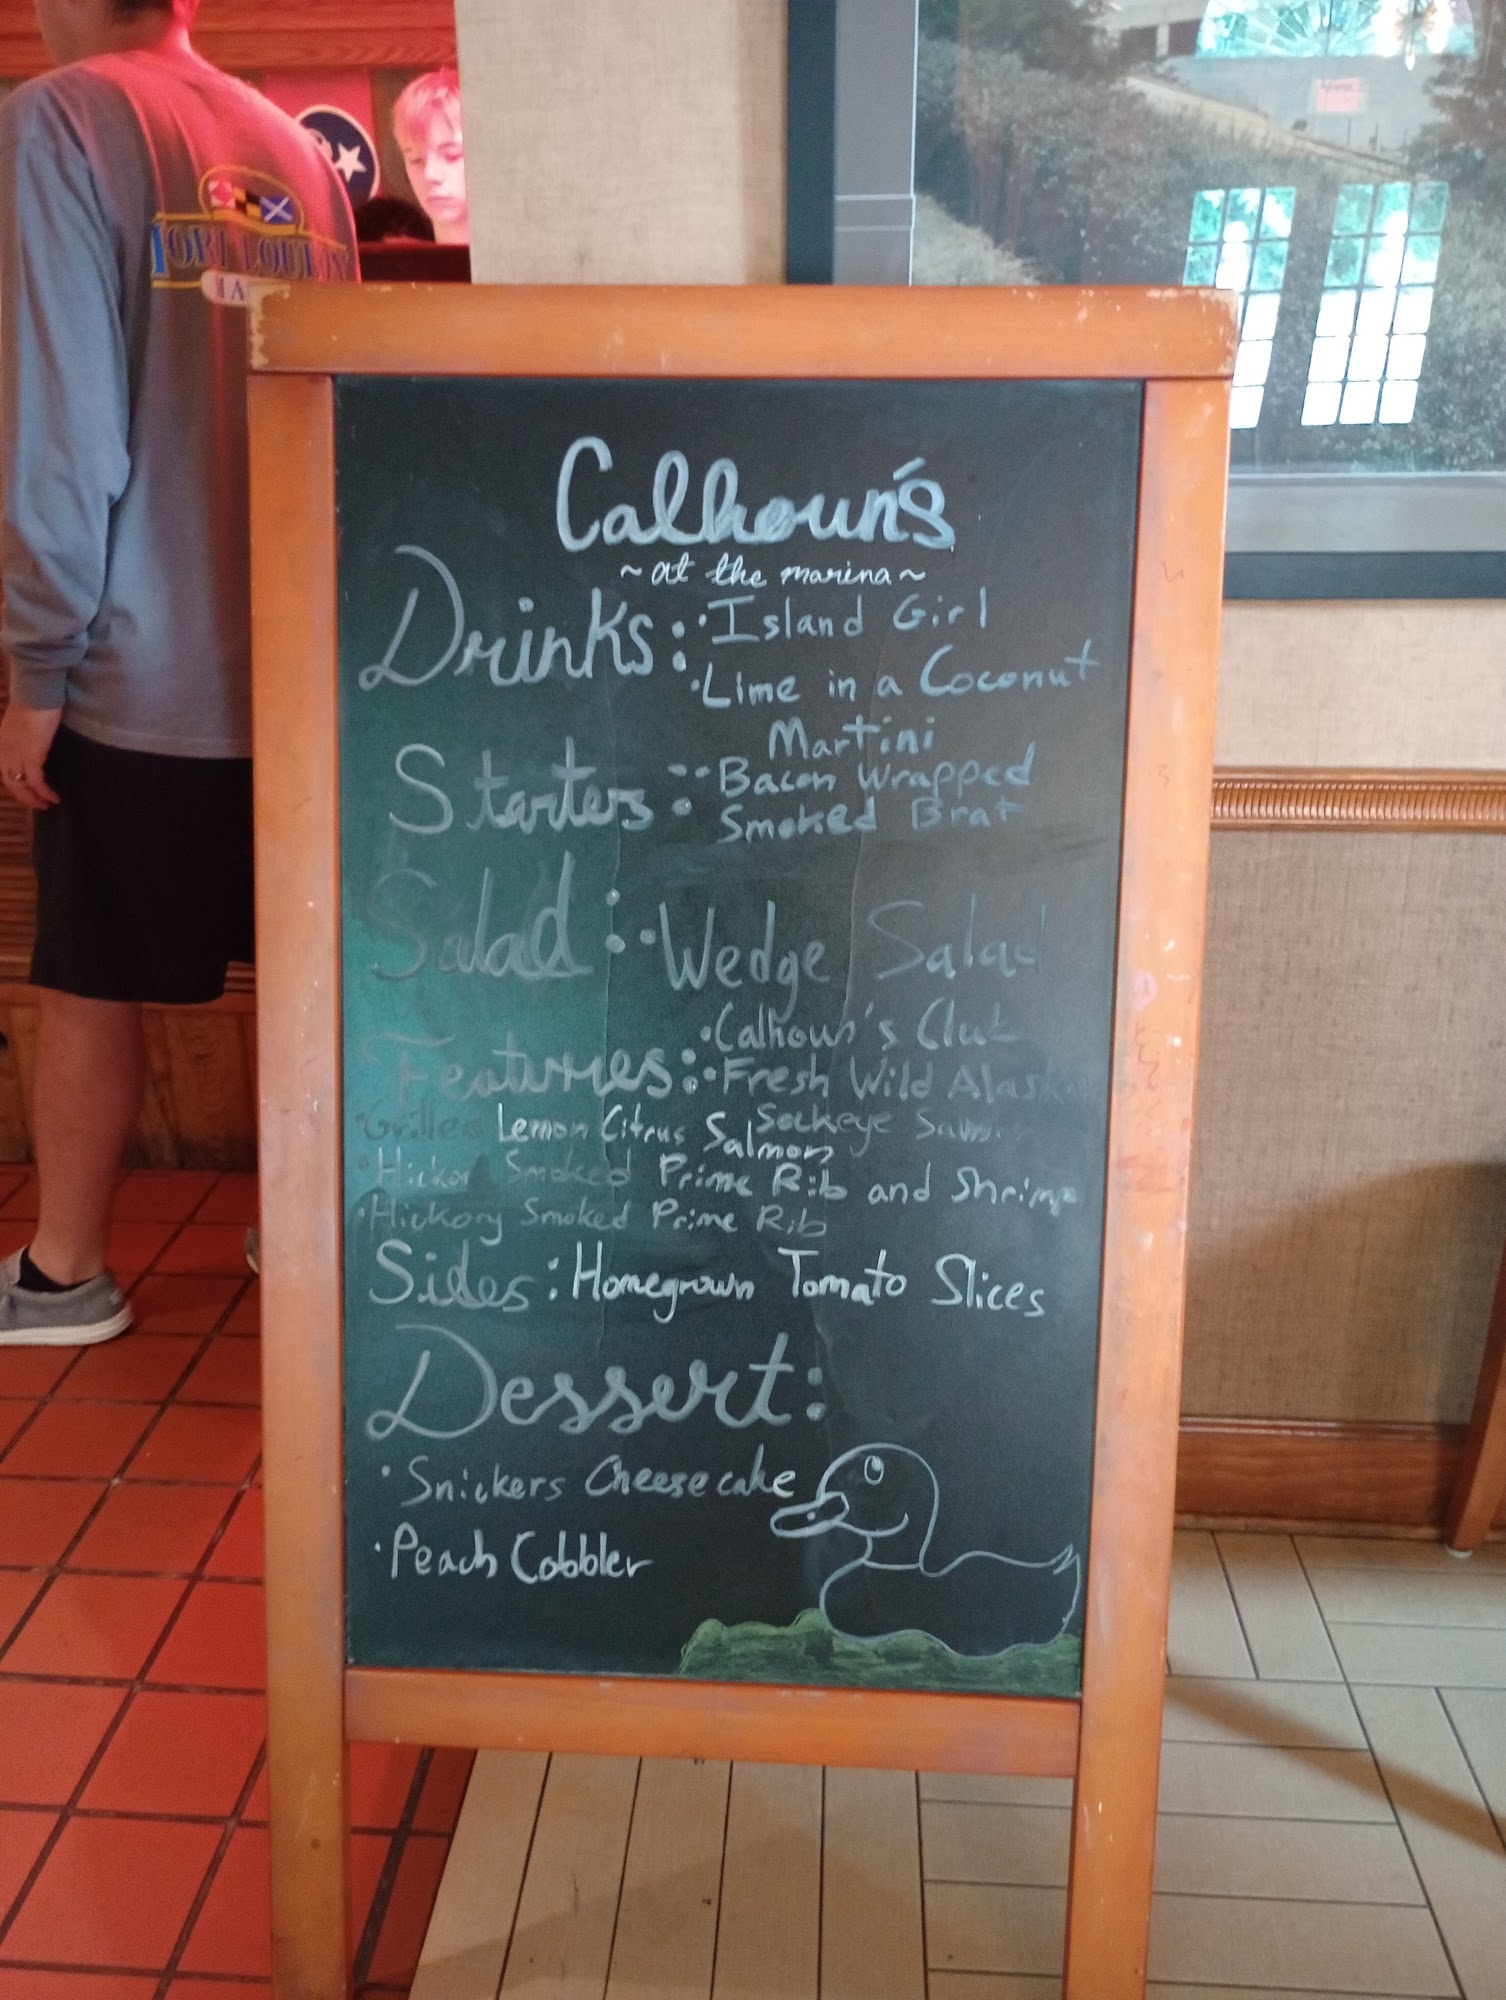 FORT LOUDON
MA
Calhoun's
~ at the marina ~
Drinks: • Island Girl
• Lime in a Coconut
Martini
Starters: • Bacon Wrapped
Smoked Brat
Salad: • Wedge Salad
• Calhoun's Club
Features: • Fresh Wild Alaskan
Sockeye Salmon
• Grilled Lemon Citrus Salmon
• Hickory Smoked Prime Rib and Shrimp
• Hickory Smoked Prime Rib
Sides: Homegrown Tomato Slices
Dessert:
• Snickers Cheesecake
• Peach Cobbler